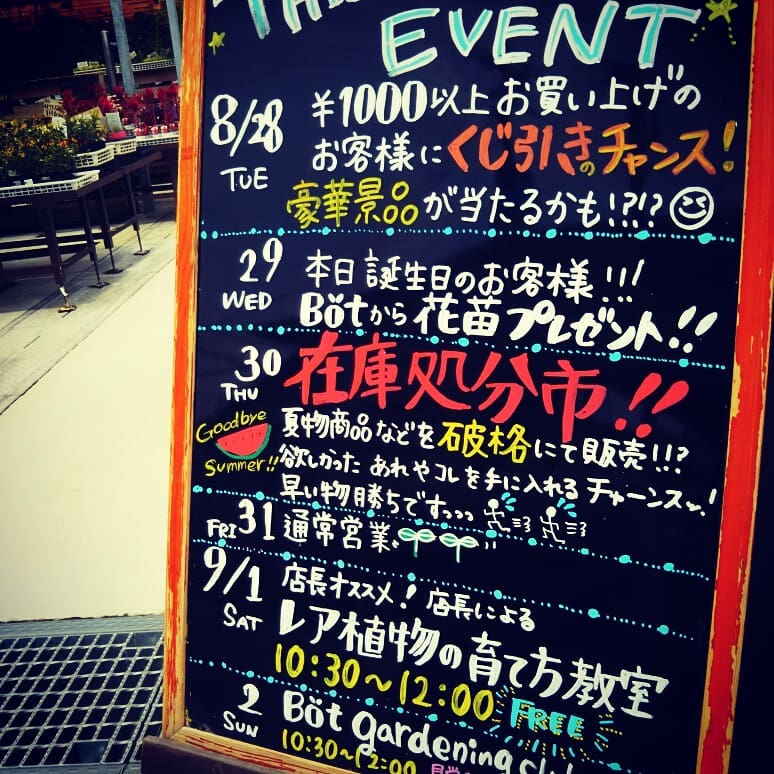 EVENT
8/28 TUE
¥1000以上お買い上げの
お客様にくじ引きのチャンス!
豪華景品が当たるかも!?!?
29 WED
本日誕生日のお客様!!!
Bötから花苗プレゼント!!
30 THU
在庫処分市!!
Goodbye Summer!!
夏物商品などを破格にて販売!!?
欲しかったあれやコレを手に入れるチャーンスッ!
早い物勝ちですっっっ
FRI 31 通常営業
9/1 SAT
店長オススメ!店長による
レア植物の育て方教室
10:30~12:00 FREE
2 SUN
Böt gardening
10:30~12:00